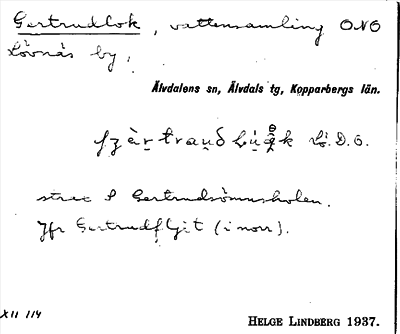 Gertrudlok, vattensamling ONO
Lövnäs by,
Älvdalens sn, Älvdals tg, Kopparbergs län.
Lö. D. O.
strax S Gertrudsömusholen.
Jfr Gertrudfljit (i norr).
XII 114
HELGE LINDBERG 1937.